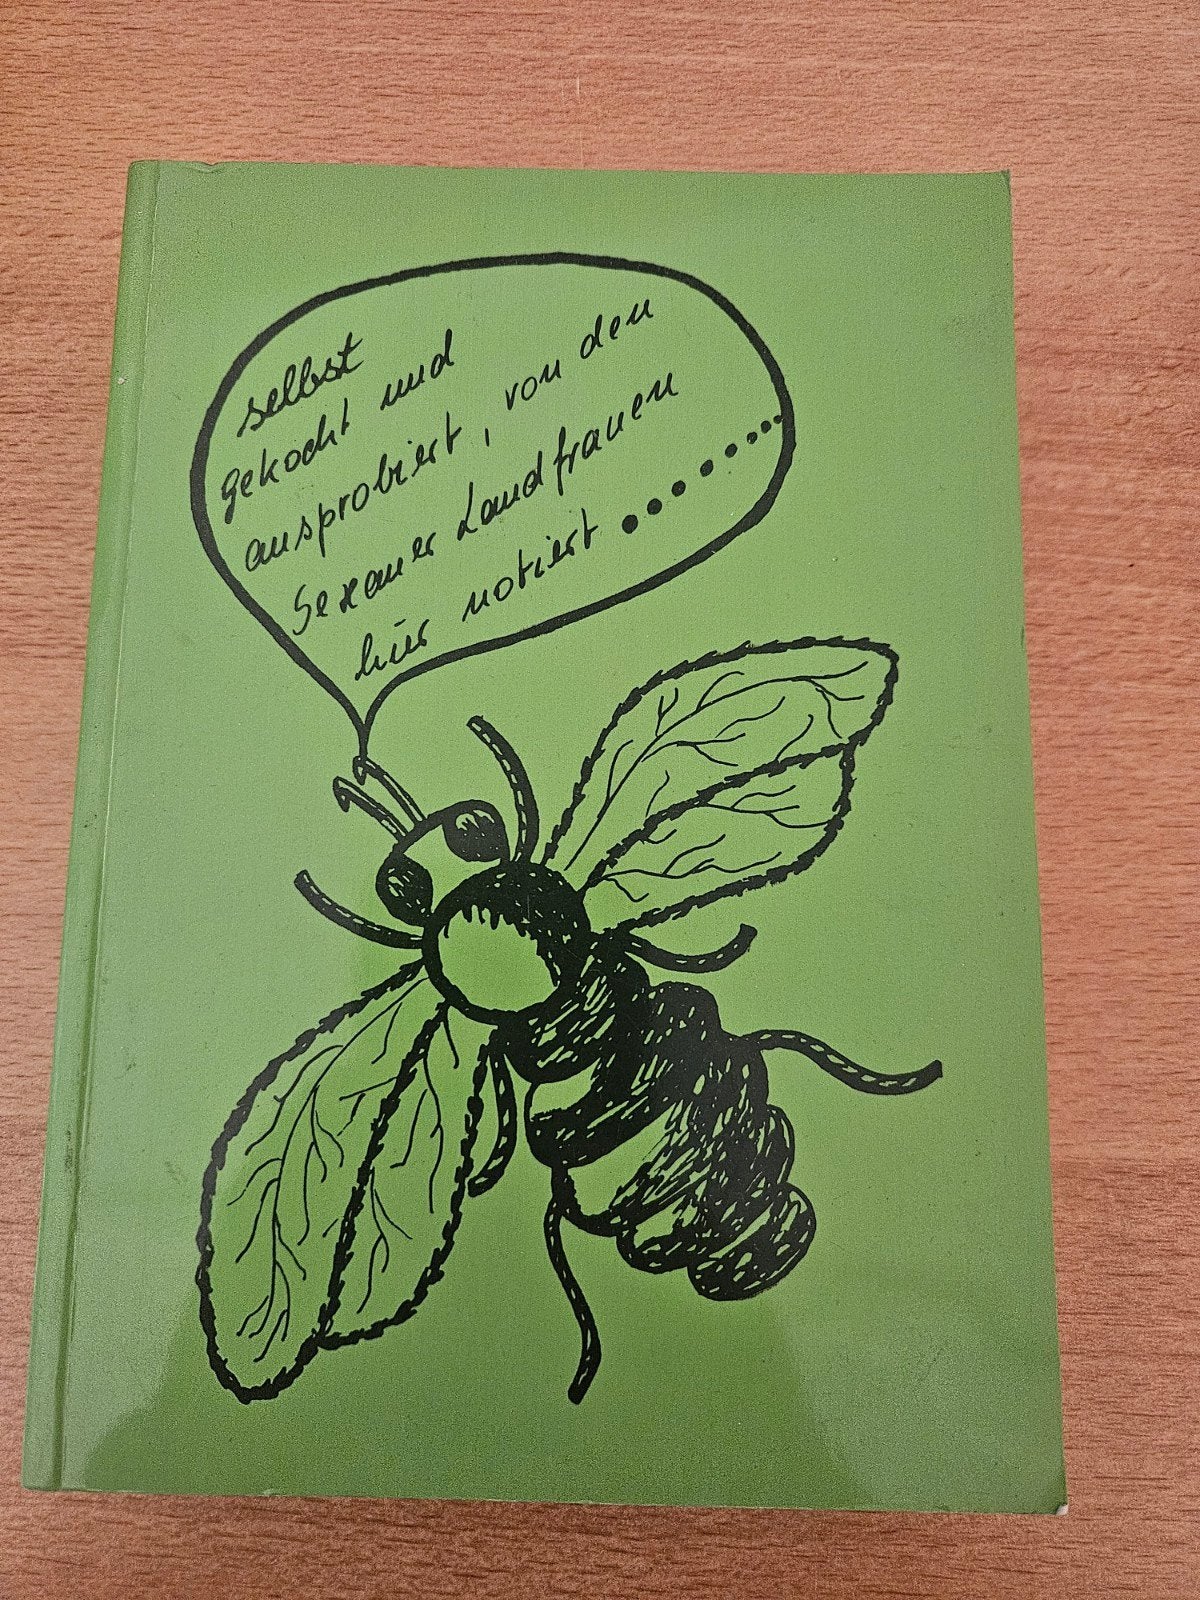 selbst
gekocht und
ausprobiert, von den
Sexauer Landfrauen
hier notiert ..........